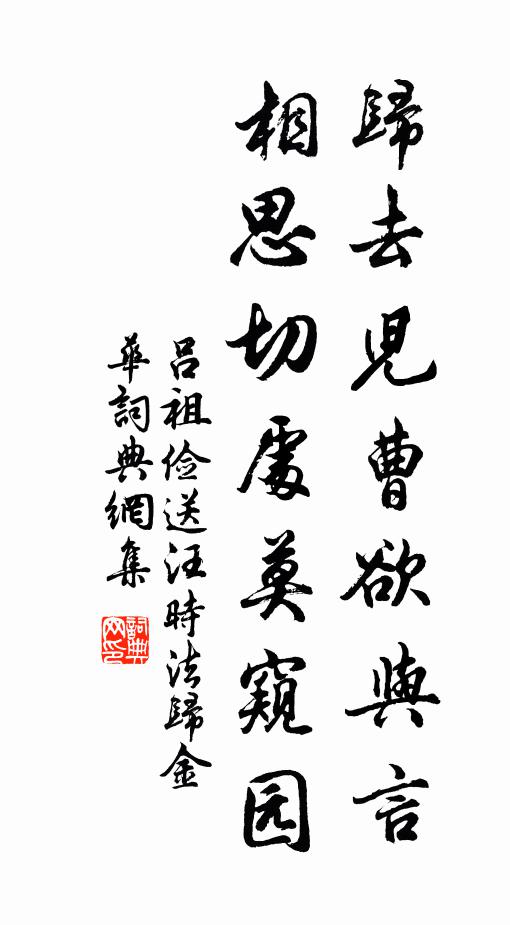 歸去兒曹欲與言
相思切處莫窺园
吕祖俭送汪時法歸金
華詞典網集
詞典网印